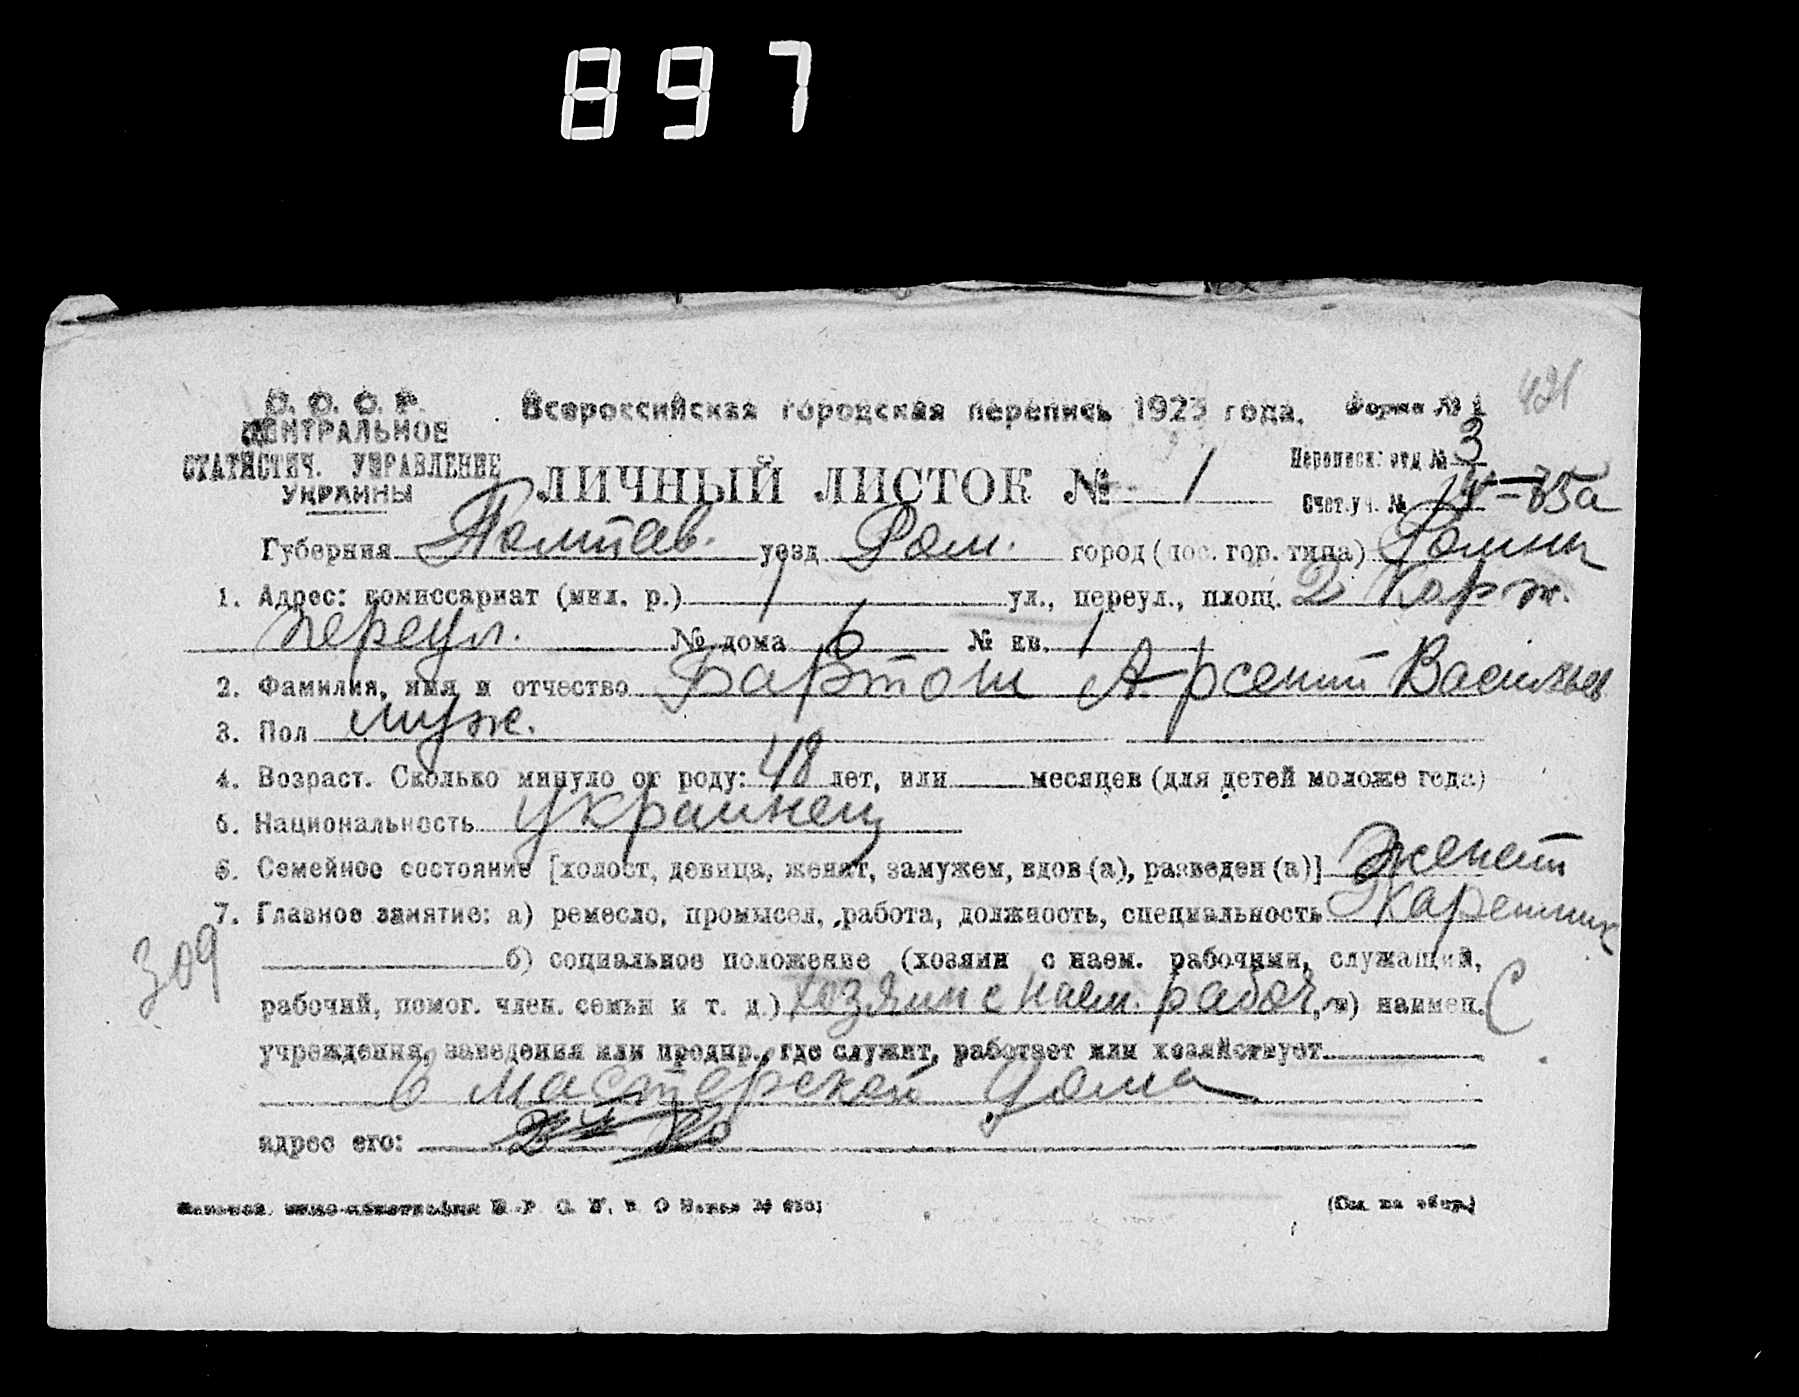 897
С. С. С. Р.
ЦЕНТРАЛЬНОЕ
СТАТИСТИЧ. УПРАВЛЕНИЕ
УКРАИНЫ
Всероссийская городская перепись 1923 года.
Форма № 1
421
ЛИЧНЫЙ ЛИСТОК № 1
Переписн. отд № 3
Счет. уч. №
Губерния Полтав. уезд Ром. город (пос. гор. типа) Ромны
1. Адрес: комиссариат (мил. р.) 1 ул., переул., площ. 2 Карж.
переул. № дома 6 № кв. 1
2. Фамилия, имя и отчество Бартош Арсений Васильев
3. Пол муж.
4. Возраст. Сколько минуло от роду: 48 лет, или месяцев (для детей моложе года)
5. Национальность украинец
6. Семейное состояние [холост, девица, женат, замужем, вдов (а), разведен (а)] женат
7. Главное занятие: а) ремесло, промысел, работа, должность, специальность Каретник
309
б) социальное положение (хозяин с наем. рабочими, служащий,
рабочий, помог. член. семьи и т. д.) хозяин с наем. рабоч. в) наимен. С
учреждения, заведения или предпр., где служит, работает или хозяйствует
в мастерской дома
адрес его:
(См. на обор.)